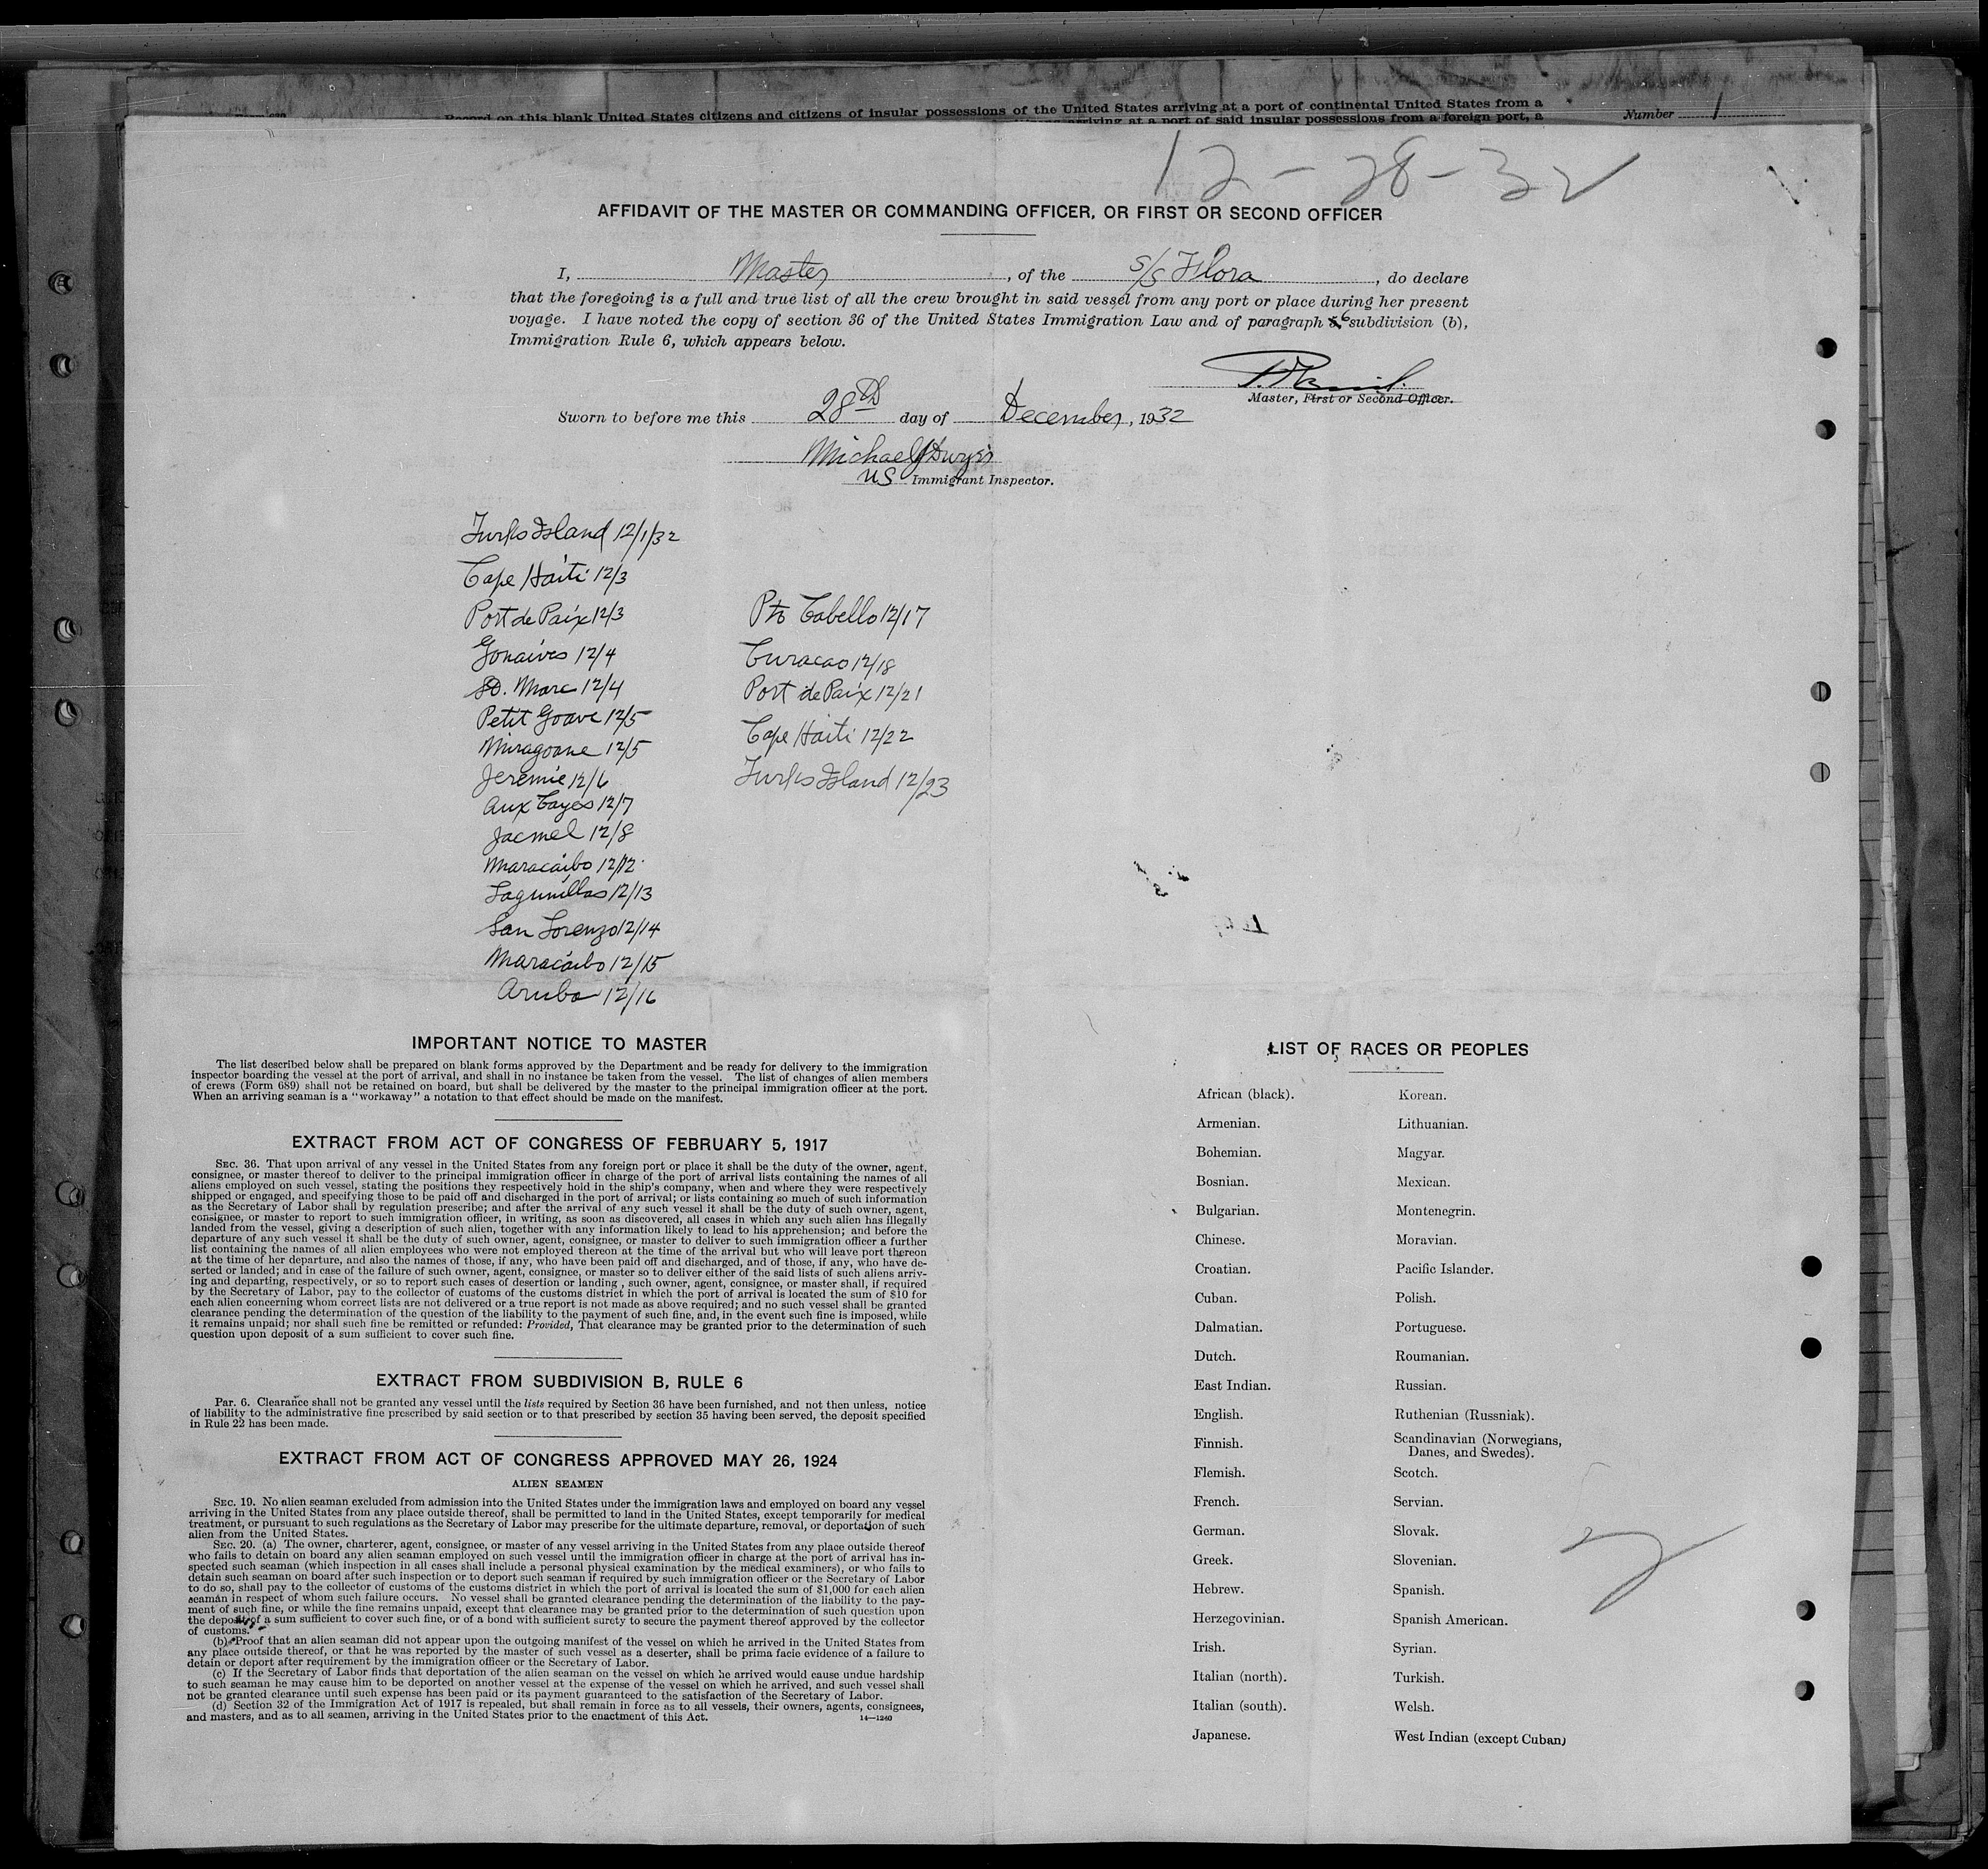 Record on this blank United States citizens and citizens of insular possessions of the United States arriving at a port of continental United States from a
arriving at a port of said insular possessions from a foreign port, a
Number 1
12-28-32
AFFIDAVIT OF THE MASTER OR COMMANDING OFFICER, OR FIRST OR SECOND OFFICER
I, Master, of the S/S Flora, do declare
that the foregoing is a full and true list of all the crew brought in said vessel from any port or place during her present
voyage. I have noted the copy of section 36 of the United States Immigration Law and of paragraph 6 subdivision (b),
Immigration Rule 6, which appears below.
Master, First or Second Officer.
Sworn to before me this 28th day of December, 1932
Michael J Dwyer
US Immigrant Inspector.
Turks Island 12/1/32
Cape Haiti 12/3
Port de Paix 12/3
Gonaives 12/4
St. Marc 12/4
Petit Goave 12/5
Miragoane 12/5
Jeremie 12/6
Aux Cayes 12/7
Jacmel 12/8
Maracaibo 12/12
Lagunillas 12/13
San Lorenzo 12/14
Maracaibo 12/15
Aruba 12/16
Pto Cabello 12/17
Curacao 12/18
Port de Paix 12/21
Cape Haiti 12/22
Turks Island 12/23
IMPORTANT NOTICE TO MASTER
The list described below shall be prepared on blank forms approved by the Department and be ready for delivery to the immigration
inspector boarding the vessel at the port of arrival, and shall in no instance be taken from the vessel. The list of changes of alien members
of crews (Form 689) shall not be retained on board, but shall be delivered by the master to the principal immigration officer at the port.
When an arriving seaman is a "workaway" a notation to that effect should be made on the manifest.
EXTRACT FROM ACT OF CONGRESS OF FEBRUARY 5, 1917
SEC. 36. That upon arrival of any vessel in the United States from any foreign port or place it shall be the duty of the owner, agent,
consignee, or master thereof to deliver to the principal immigration officer in charge of the port of arrival lists containing the names of all
aliens employed on such vessel, stating the positions they respectively hold in the ship's company, when and where they were respectively
shipped or engaged, and specifying those to be paid off and discharged in the port of arrival; or lists containing so much of such information
as the Secretary of Labor shall by regulation prescribe; and after the arrival of any such vessel it shall be the duty of such owner, agent,
consignee, or master to report to such immigration officer, in writing, as soon as discovered, all cases in which any such alien has illegally
landed from the vessel, giving a description of such alien, together with any information likely to lead to his apprehension; and before the
departure of any such vessel it shall be the duty of such owner, agent, consignee, or master to deliver to such immigration officer a further
list containing the names of all alien employees who were not employed thereon at the time of the arrival but who will leave port thereon
at the time of her departure, and also the names of those, if any, who have been paid off and discharged, and of those, if any, who have de-
serted or landed; and in case of the failure of such owner, agent, consignee, or master so to deliver either of the said lists of such aliens arriv-
ing and departing, respectively, or so to report such cases of desertion or landing , such owner, agent, consignee, or master shall, if required
by the Secretary of Labor, pay to the collector of customs of the customs district in which the port of arrival is located the sum of $10 for
each alien concerning whom correct lists are not delivered or a true report is not made as above required; and no such vessel shall be granted
clearance pending the determination of the question of the liability to the payment of such fine, and, in the event such fine is imposed, while
it remains unpaid; nor shall such fine be remitted or refunded: Provided, That clearance may be granted prior to the determination of such
question upon deposit of a sum sufficient to cover such fine.
EXTRACT FROM SUBDIVISION B, RULE 6
Par. 6. Clearance shall not be granted any vessel until the lists required by Section 36 have been furnished, and not then unless, notice
of liability to the administrative fine prescribed by said section or to that prescribed by section 35 having been served, the deposit specified
in Rule 22 has been made.
EXTRACT FROM ACT OF CONGRESS APPROVED MAY 26, 1924
ALIEN SEAMEN
SEC. 19. No alien seaman excluded from admission into the United States under the immigration laws and employed on board any vessel
arriving in the United States from any place outside thereof, shall be permitted to land in the United States, except temporarily for medical
treatment, or pursuant to such regulations as the Secretary of Labor may prescribe for the ultimate departure, removal, or deportation of such
alien from the United States.
SEC. 20. (a) The owner, charterer, agent, consignee, or master of any vessel arriving in the United States from any place outside thereof
who fails to detain on board any alien seaman employed on such vessel until the immigration officer in charge at the port of arrival has in-
spected such seaman (which inspection in all cases shall include a personal physical examination by the medical examiners), or who fails to
detain such seaman on board after such inspection or to deport such seaman if required by such immigration officer or the Secretary of Labor
to do so, shall pay to the collector of customs of the customs district in which the port of arrival is located the sum of $1,000 for each alien
seaman in respect of whom such failure occurs. No vessel shall be granted clearance pending the determination of the liability to the pay-
ment of such fine, or while the fine remains unpaid, except that clearance may be granted prior to the determination of such question upon
the deposit of a sum sufficient to cover such fine, or of a bond with sufficient surety to secure the payment thereof approved by the collector
of customs.
(b) Proof that an alien seaman did not appear upon the outgoing manifest of the vessel on which he arrived in the United States from
any place outside thereof, or that he was reported by the master of such vessel as a deserter, shall be prima facie evidence of a failure to
detain or deport after requirement by the immigration officer or the Secretary of Labor.
(c) If the Secretary of Labor finds that deportation of the alien seaman on the vessel on which he arrived would cause undue hardship
to such seaman he may cause him to be deported on another vessel at the expense of the vessel on which he arrived, and such vessel shall
not be granted clearance until such expense has been paid or its payment guaranteed to the satisfaction of the Secretary of Labor.
(d) Section 32 of the Immigration Act of 1917 is repealed, but shall remain in force as to all vessels, their owners, agents, consignees,
and masters, and as to all seamen, arriving in the United States prior to the enactment of this Act.
14—1240
LIST OF RACES OR PEOPLES
African (black).
Armenian.
Bohemian.
Bosnian.
Bulgarian.
Chinese.
Croatian.
Cuban.
Dalmatian.
Dutch.
East Indian.
English.
Finnish.
Flemish.
French.
German.
Greek.
Hebrew.
Herzegovinian.
Irish.
Italian (north).
Italian (south).
Japanese.
Korean.
Lithuanian.
Magyar.
Mexican.
Montenegrin.
Moravian.
Pacific Islander.
Polish.
Portuguese.
Roumanian.
Russian.
Ruthenian (Russniak).
Scandinavian (Norwegians,
Danes, and Swedes).
Scotch.
Servian.
Slovak.
Slovenian.
Spanish.
Spanish American.
Syrian.
Turkish.
Welsh.
West Indian (except Cuban)